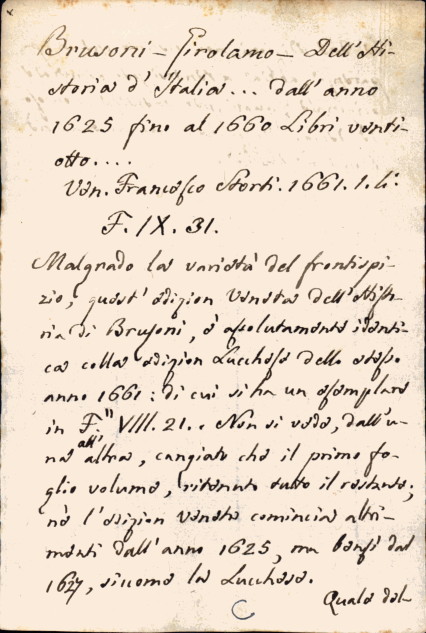 Brusoni – Girolamo – Dell'Hi-
storia d'Italia... dall'anno
1625 fino al 1660 Libri venti-
otto....
Ven. Francesco Storti. 1661. 1. li.
F. IX. 31.
Malgrado la varietà del frontispi-
zio, quest'edizion veneta dell'Histo-
ria di Brusoni, è assolutamente identi-
ca colla edizion Lucchese dello stesso
anno 1661: di cui si ha un esemplare
in F. VIII. 21.. Non si vede, dall'u-
na all'altra, cangiato che il primo fo-
glio volume, ritenuto tutto il restante;
nè l'edizion veneta comincia altri-
menti dall'anno 1625, ma bensì dal
1627, siccome la Lucchese.
Quale del-